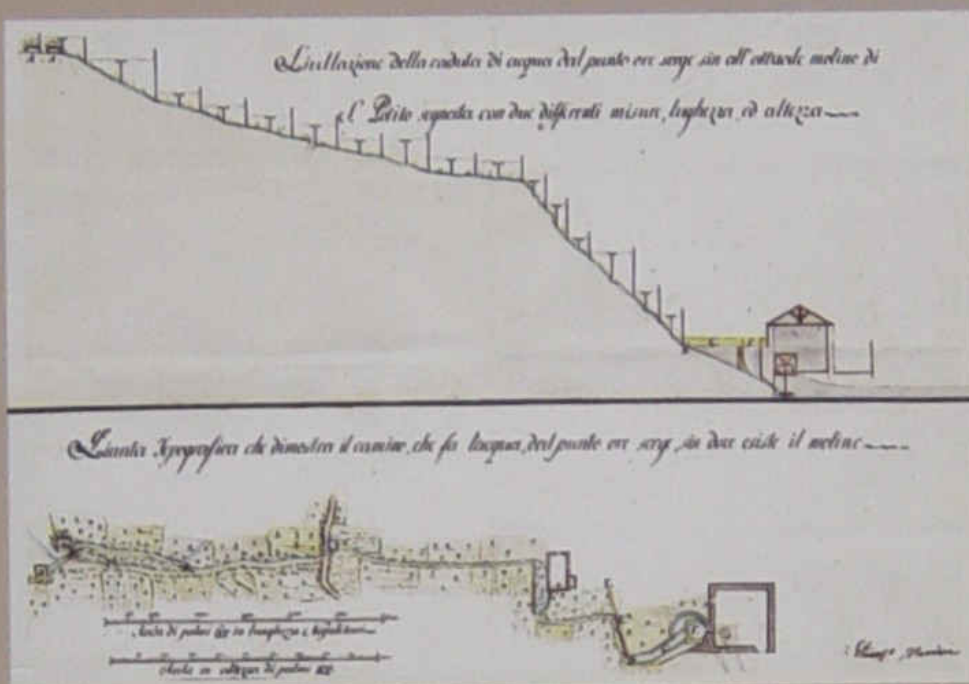 Livellazione della caduta di acqua dal punto ove serge sin all'attuale moline di
Potito segnata con due differenti misure, lughezza, ed altezza
Pianta Topografica che dimostra il camine, che fa l'acqua, dal punto ove serge, sin dove esiste il moline
Scala di palmi in lunghezza
Scala in altezza di palmi